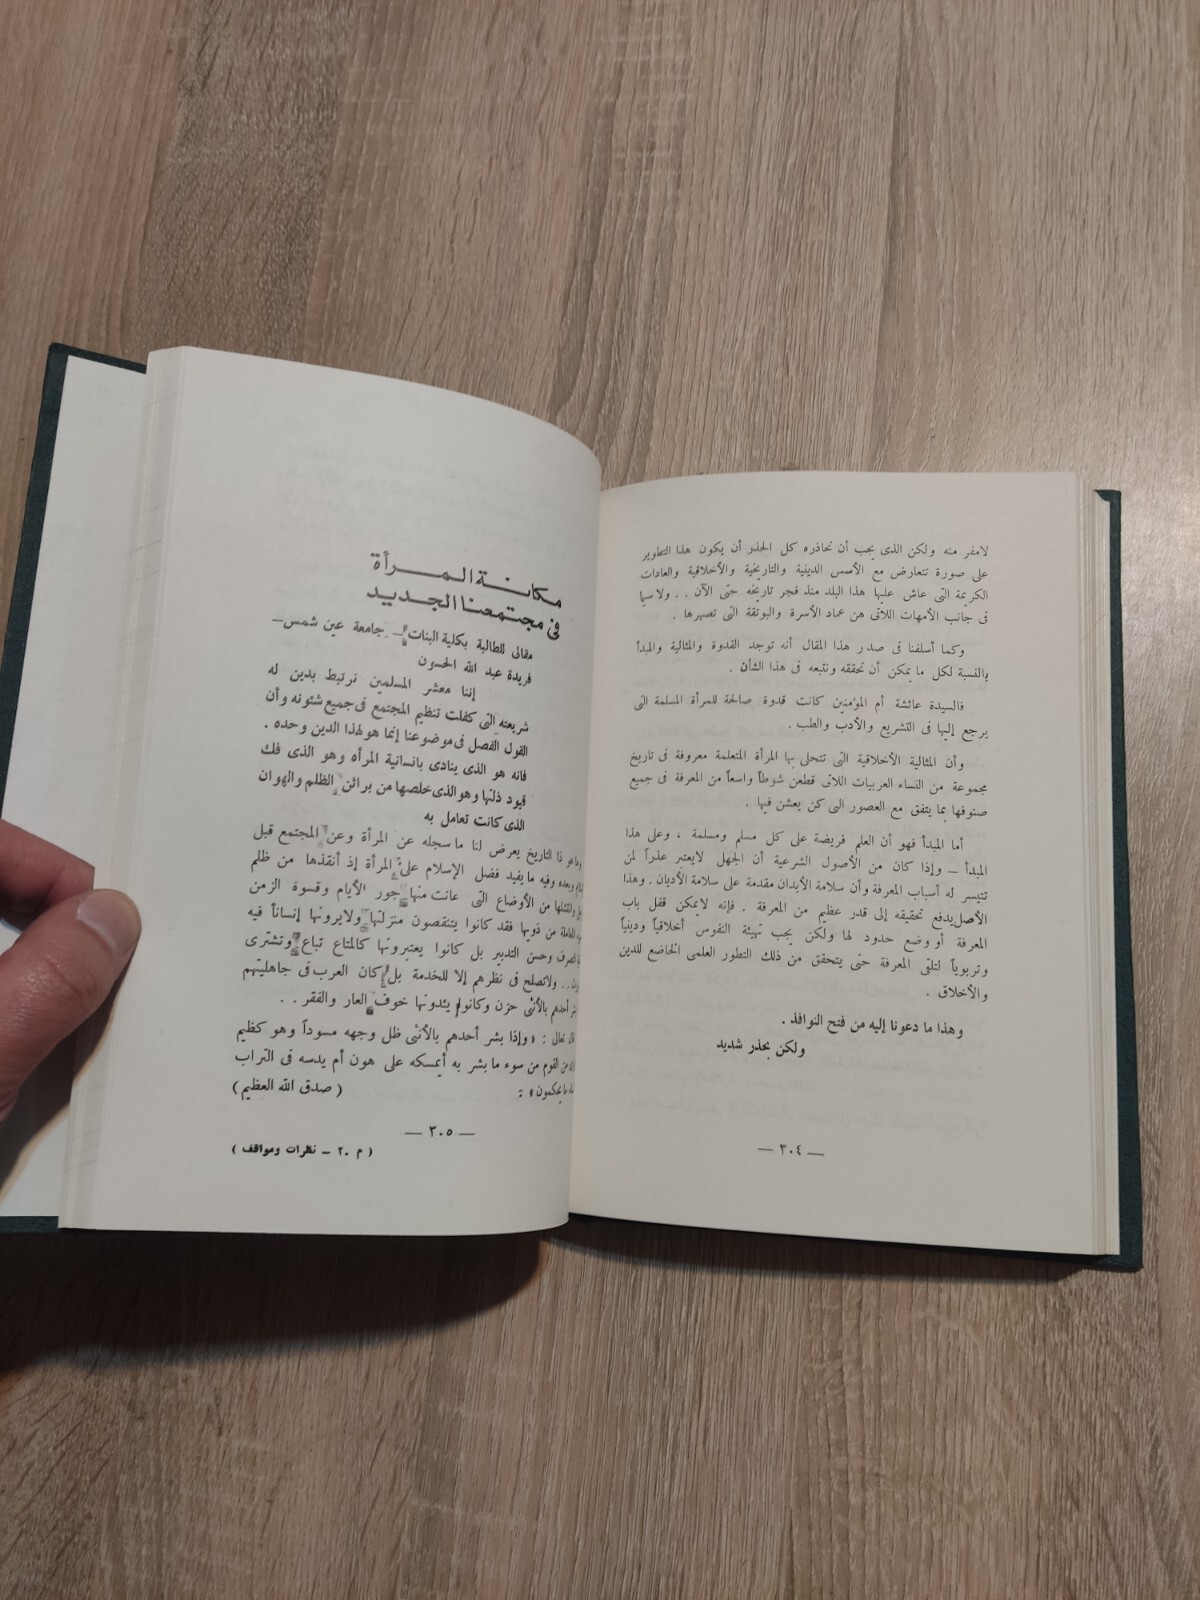 لامفر منه ولكن الذى يجب أن نحاذره كل الحذر أن يكون هذا التطوير
على صورة تتعارض مع الأسس الدينية والتاريخية والأخلاقية والعادات
الكريمة التى عاش عليها هذا البلد منذ فجر تاريخه حتى الآن . . ولاسيما
فى جانب الأمهات اللاتى هن عماد الأسرة والبوتقة التى تصهرها .
وكما أسلفنا فى صدر هذا المقال أنه توجد القدوة والمثالية والمبدأ
بالنسبة لكل ما يمكن أن نحققه ونتبعه فى هذا الشأن .
فالسيدة عائشة أم المؤمنين كانت قدوة صالحة للمرأة المسلمة التى
يرجع إليها فى التشريع والأدب والطب .
وأن المثالية الأخلاقية التى تتحلى بها المرأة المتعلمة معروفة فى تاريخ
مجموعة من النساء العربيات اللاتى قطعن شوطاً واسعاً من المعرفة فى جميع
صنوفها بما يتفق مع العصور التى كن يعشن فيها .
أما المبدأ فهو أن العلم فريضة على كل مسلم ومسلمة ، وعلى هذا
المبدأ – وإذا كان من الأصول الشرعية أن الجهل لايعتبر عذراً لمن
تتيسر له أسباب المعرفة وأن سلامة الأبدان مقدمة على سلامة الأديان . وهذا
الأصل يدفع تحقيقه إلى قدر عظيم من المعرفة . فإنه لايمكن قفل باب
المعرفة أو وضع حدود لها ولكن يجب تهيئة النفوس أخلاقياً ودينياً
وتربوياً لتلقى المعرفة حتى يتحقق من ذلك التطور العلمى الخاضع للدين
والأخلاق .
وهذا ما دعونا إليه من فتح النوافذ .
ولكن بحذر شديد
— ٣٠٤ —
مكانة المرأة
فى مجتمعنا الجديد
مقالى للطالبة بكلية البنات – جامعة عين شمس –
فريدة عبد الله الحسون
إننا معشر المسلمين نرتبط بدين له
شريعته التى كفلت تنظيم المجتمع فى جميع شئونه وأن
القول الفصل فى موضوعنا إنما هو لهذا الدين وحده .
فانه هو الذى ينادى بانسانية المرأه وهو الذى فك
قيود ذلتها وهو الذى خلصها من براثن الظلم والهوان
الذى كانت تعامل به
وها هو ذا التاريخ يعرض لنا ما سجله عن المرأة وعن المجتمع قبل
وبعده وفيه ما يفيد فضل الإسلام على المرأة إذ أنقذها من ظلم
وانتشلها من الأوضاع التى عانت منها جور الأيام وقسوة الزمن
المعاملة من ذويها فقد كانوا ينتقصون منزلتها ولايرونها إنساناً فيه
التصرف وحسن التدبير بل كانوا يعتبرونها كالمتاع تباع وتشترى
. . ولاتصلح فى نظرهم إلا للخدمة بل كان العرب فى جاهليتهم
بشر أحدهم بالأنثى حزن وكانوا يئدونها خوف العار والفقر . .
قال تعالى : « وإذا بشر أحدهم بالأنثى ظل وجهه مسوداً وهو كظيم
من القوم من سوء ما بشر به أيمسكه على هون أم يدسه فى التراب
ما يحكمون » : ( صدق الله العظيم )
— ٣٠٥ —
( م ٢٠ – نظرات ومواقف )